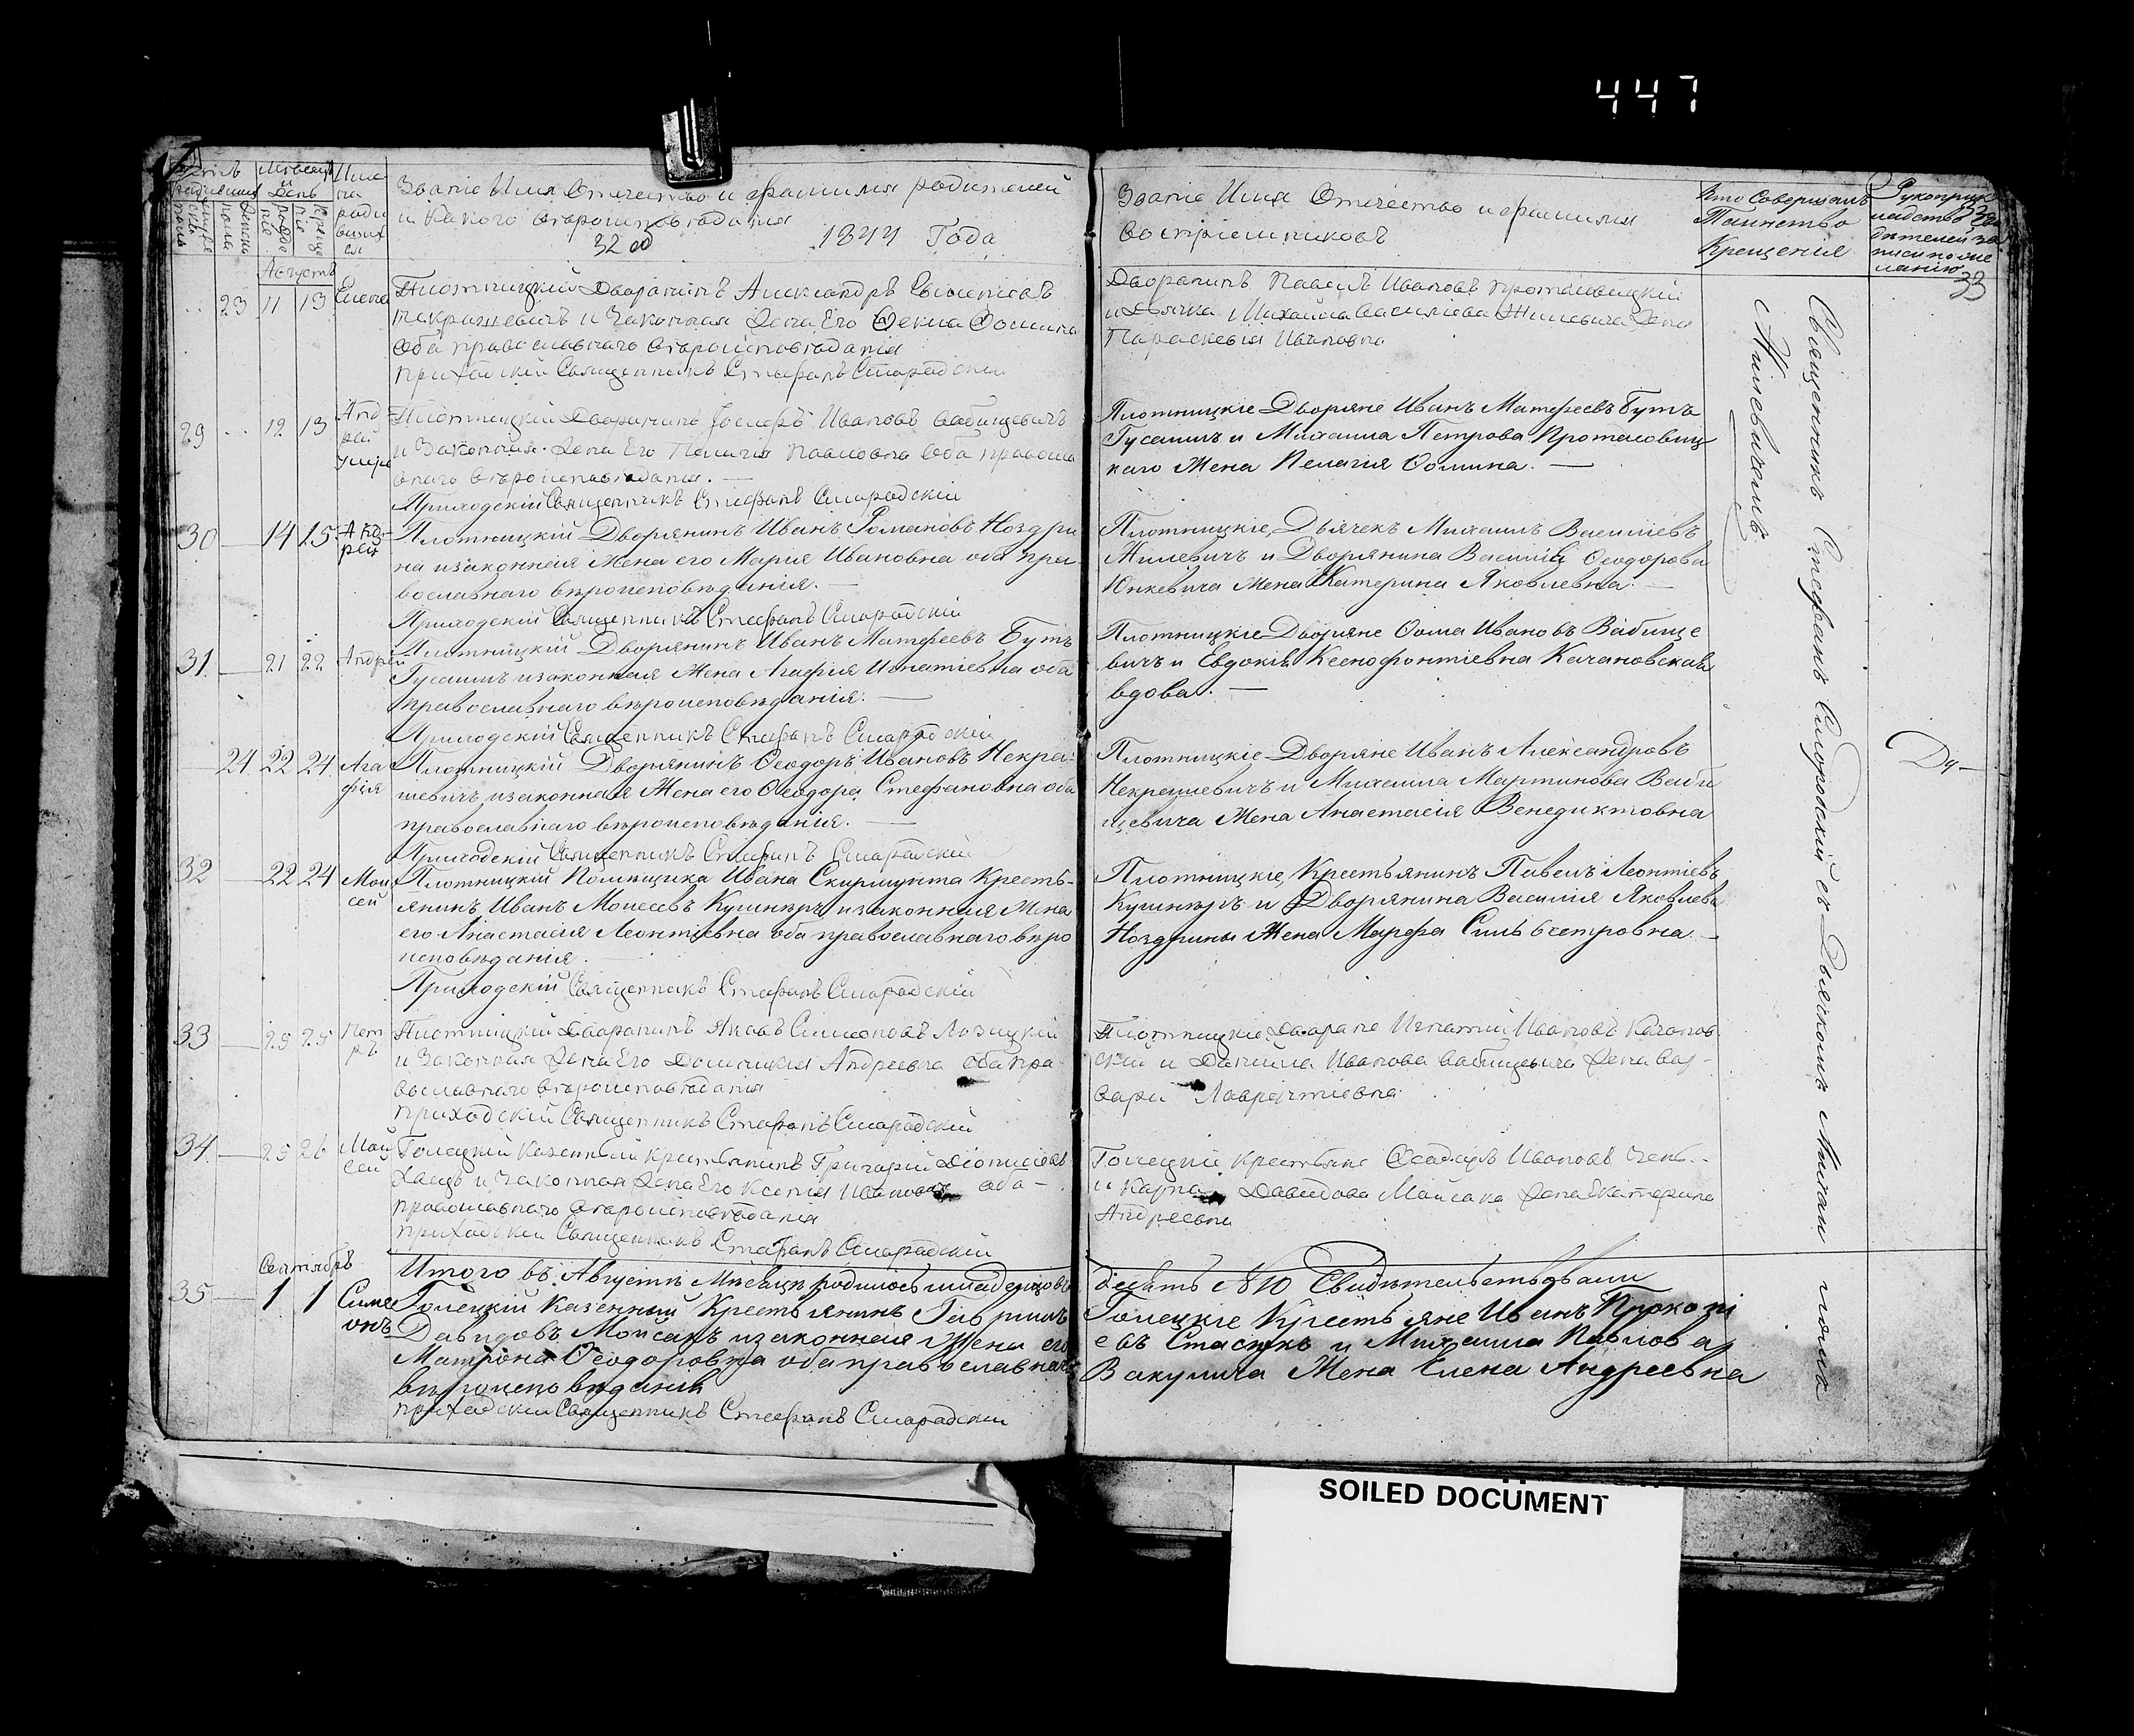 447
Звание Имя Отечество и фамилия родителей
и какого вероисповедания
32 об 1844 Года
Звание Имя Отечество и фамилия
восприемниковъ
Кто Совершалъ
Таинство
Крещения
Рукоприк
33
Августъ
23 11 13 Елена
Плотницкий Дворянинъ Александръ
Некрашевичъ и Законная Жена Его Фекла Фомина
Оба православнаго вероисповедания
приходский Священникъ Стефанъ Смородский
Дворянинъ Павелъ Ивановъ Протасовицкий
и Дьячка Михаила Васильева Жилевича Жена
Параскевия Ивановна
29 12 13 Анд
рей
умре
Плотницкий Дворянинъ Иосифъ Ивановъ Вабищевичъ
и Законная Жена Его Пелагия Павловна Оба правосла
внаго вероисповедания. —
Приходский Священникъ Стефанъ Смородский
Плотницкіе Дворяне Иванъ Матфеевъ Бутъ
Гусаимъ и Михаила Петрова Протасовиц
каго Жена Пелагия Фомина. —
30 14 15 Анд-
рей
Плотницкій Дворянинъ Иванъ Романовъ Ноздри
на изаконная Жена его Марія Ивановна оба пра
вославнаго вѣроисповѣданія. —
Приходскій Священникъ Стефанъ Смородскій
Плотницкіе, Дьячекъ Михаилъ Василіевъ
Жилевичъ и Дворянина Василія Ѳеодорова
Юнкевича Жена Катерина Яковлевна. —
31 21 22 Андрей
Плотницкій Дворянинъ Иванъ Матфеевъ Бутъ
Гусаимъ изаконная Жена Агафія Игнатіевна оба
православнаго вѣроисповѣданія. —
Приходскій Священникъ Стефанъ Смородскій
Плотницкіе Дворяне Ѳома Ивановъ Вабище
вичъ и Евдокія Ксенофонтіевна Качановская
вдова. —
24 22 24 Ага
фія
Плотницкій Дворянинъ Ѳеодоръ Ивановъ Некра-
шевичъ изаконная Жена его Ѳеодора Стефановна оба
православнаго вѣроисповѣданія. —
Приходскій Священникъ Стефанъ Смородскій
Плотницкіе Дворяне Иванъ Александровъ
Некрашевичъ и Михаила Мартинова Ваби
щевича Жена Анастасія Венедиктовна
32 22 24 Мои
сей
Плотницкій Помѣщика Ивана Скирмунта Кресть-
янинъ Иванъ Моисеевъ Кушнѣръ изаконная Жена
его Анастасія Леонтіевна оба православнаго вѣро
исповѣданія.
Приходскій Священникъ Стефанъ Смородскій
Плотницкіе, Крестьянинъ Павелъ Леонтіевъ
Кушнѣръ и Дворянина Василія Яковлева
Ноздрины Жена Марфа Сильвестровна —
33 25 25 Пет
ръ
Плотницкий Дворянинъ Яковъ Симеоновъ Лозицкий
и Законная Жена Его Домникия Андреевна оба пра
вославнаго вероисповедания
приходский Священникъ Стефанъ Смородский
Плотницкие Дворяне Игнатий Ивановъ Качанов
ский и Данила Иванова Вабищевича Жена Вар-
вара Лаврентиевна
34 25 26 Мои
сей
Голецкий Казенный крестьянинъ Григорий Дионисиевъ
и Законная Жена Его Ксения Ивановна оба —
православнаго вероисповедания
приходский Священникъ Стефанъ Смородский
Голецкие крестьяне Феодоръ Ивановъ
и Карпа Давидова Мойсака Жена Екатерина
Андреевна
Итого въ Августѣ Мѣсяцѣ родилось младенцовъ
десять №10 Свидѣтельствуемъ
Сентябрь
35 1 1 Симе
онъ
Голецкій Казенный Крестьянинъ Гавриилъ
Давидовъ Мойсакъ изаконная Жена его
Матрона Ѳеодоровна оба православнаго
вѣроисповѣданія
приходский Священникъ Стефанъ Смородский
Голецкіе Крестьяне Иванъ Прокопі
евъ Стасюкъ и Михаила Павлова
Вакулича Жена Елена Андреевна
Священникъ Стефанъ Смородскій съ Дьячкомъ Михаи ломъ
Жилевичемъ
SOILED DOCUMENT